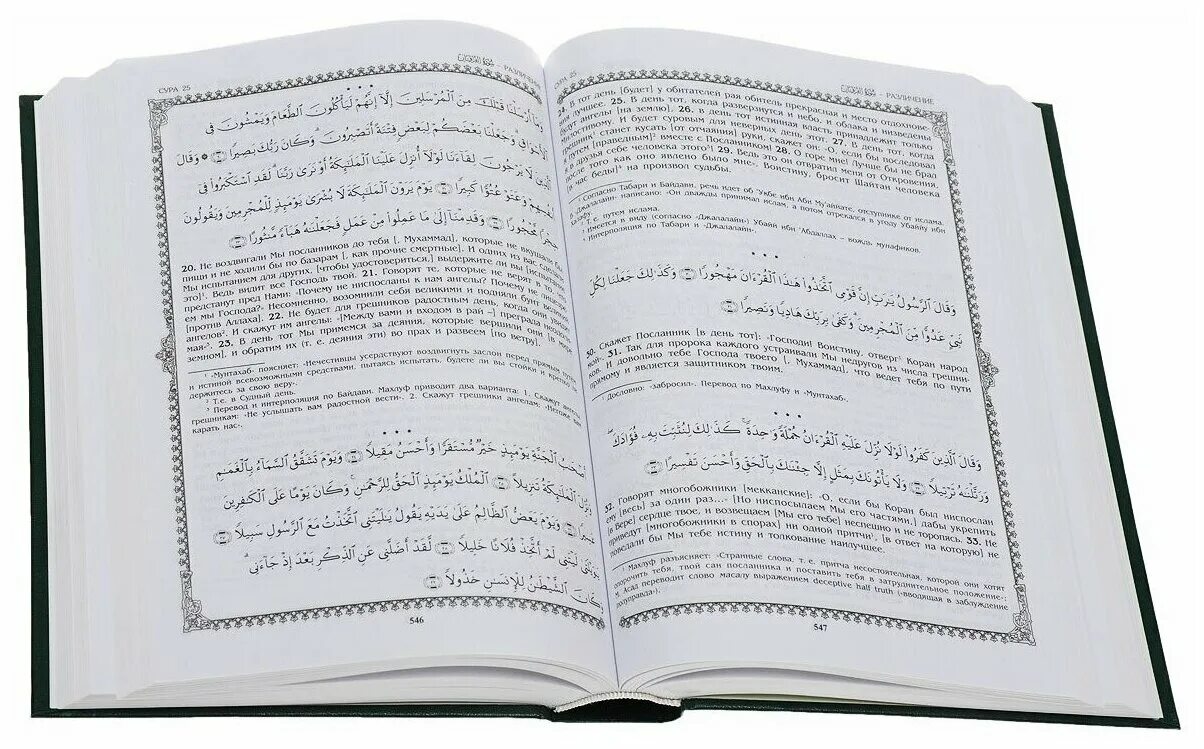 СУРА 25
سورة الفرقان
РАЗЛИЧЕНИЕ
• • •
وَمَا أَرْسَلْنَا قَبْلَكَ مِنَ ٱلْمُرْسَلِينَ إِلَّا إِنَّهُمْ لَيَأْكُلُونَ ٱلطَّعَامَ وَيَمْشُونَ فِى
ٱلْأَسْوَاقِ وَجَعَلْنَا بَعْضَكُمْ لِبَعْضٍ فِتْنَةً أَتَصْبِرُونَ وَكَانَ رَبُّكَ بَصِيرًا وَقَالَ
ٱلَّذِينَ لَا يَرْجُونَ لِقَاءَنَا لَوْلَا أُنزِلَ عَلَيْنَا ٱلْمَلَٰئِكَةُ أَوْ نَرَىٰ رَبَّنَا لَقَدِ ٱسْتَكْبَرُوا۟ فِى
أَنفُسِهِمْ وَعَتَوْ عُتُوًّا كَبِيرًا يَوْمَ يَرَوْنَ ٱلْمَلَٰئِكَةَ لَا بُشْرَىٰ يَوْمَئِذٍ لِّلْمُجْرِمِينَ وَيَقُولُونَ
حِجْرًا مَّحْجُورًا وَقَدِمْنَا إِلَىٰ مَا عَمِلُوا۟ مِنْ عَمَلٍ فَجَعَلْنَٰهُ هَبَاءً مَّنثُورًا
20. Не воздвигали Мы посланников до тебя [, Мухаммад], которые не вкушали бы
пищи и не ходили бы по базарам [, как прочие смертные]. И одних из вас сделали
Мы испытанием для других, [чтобы удостовериться,] выдержите ли вы [испытание
это]¹. Ведь видит все Господь твой. 21. Говорят те, которые не верят в то, что
предстанут пред Нами: «Почему не ниспосланы к нам ангелы? Почему не лицезреем
мы Господа?» Несомненно, возомнили себя великими и подняли бунт великий
[против Аллаха]. 22. Не будет для грешников радостным день, когда они увидят
ангелов². И скажут им ангелы: «[Между вами и входом в рай –] преграда неодолимая»³.
23. В день тот Мы примемся за деяния, которые вершили они [в мире
земном], и обратим их (т. е. деяния эти) во прах и развеем [по ветру].
¹ «Мунтахаб» поясняет: «Нечестивцы усердствуют воздвигнуть заслон перед прямым путем
и истиной всевозможными средствами, пытаясь испытать, будете ли вы стойки и крепко ли
держитесь за свою веру».
² Т.е. в Судный день.
³ Перевод и интерполяция по Байдави. Махлуф приводит два варианта: 1. Скажут ангелы
грешникам: «Не услышать вам радостной вести». 2. Скажут грешники ангелам: «Негоже вам
карать нас».
• • •
أَصْحَٰبُ ٱلْجَنَّةِ يَوْمَئِذٍ خَيْرٌ مُّسْتَقَرًّا وَأَحْسَنُ مَقِيلًا وَيَوْمَ تَشَقَّقُ ٱلسَّمَاءُ بِٱلْغَمَٰمِ
وَنُزِّلَ ٱلْمَلَٰئِكَةُ تَنزِيلًا ٱلْمُلْكُ يَوْمَئِذٍ ٱلْحَقُّ لِلرَّحْمَٰنِ وَكَانَ يَوْمًا عَلَى ٱلْكَٰفِرِينَ
عَسِيرًا وَيَوْمَ يَعَضُّ ٱلظَّالِمُ عَلَىٰ يَدَيْهِ يَقُولُ يَٰلَيْتَنِى ٱتَّخَذْتُ مَعَ ٱلرَّسُولِ سَبِيلًا
يَٰوَيْلَتَىٰ لَيْتَنِى لَمْ أَتَّخِذْ فُلَانًا خَلِيلًا لَّقَدْ أَضَلَّنِى عَنِ ٱلذِّكْرِ بَعْدَ إِذْ جَاءَنِى
وَكَانَ ٱلشَّيْطَٰنُ لِلْإِنسَٰنِ خَذُولًا
546
СУРА 25
سورة الفرقان
РАЗЛИЧЕНИЕ
24. В тот день [будет] у обитателей рая обитель прекрасная и место отдохновения
лучшее. 25. В день тот, когда развернутся и небо, и облака и низведены
будут ангелы [на землю], 26. в день тот истинная власть принадлежит только
Милостивому. И будет суровым для неверных день этот. 27. В день тот, когда
грешник¹ станет кусать [от отчаяния] руки, скажет он: «О, если бы последовал
я путем [праведным]² вместе с Посланником! 28. О горе мне! Лучше бы не брал
я в друзья себе человека этого³! 29. Ведь это он отвратил меня от Откровения,
после того как оно явлено было мне». Воистину, бросит Шайтан человека
[в час беды]⁴ на произвол судьбы.
¹ Согласно Табари и Байдави, речь идет об 'Укбе ибн Аби Му'аййате, отступнике от ислама.
В «Джалалайн» написано: «Он дважды принимал ислам, а потом отрекался в угоду Убаййу ибн
Халафу».
² Т. е. путем ислама.
³ Имеется в виду (согласно «Джалалайн») Убайй ибн 'Абдаллах – вождь мунафиков.
⁴ Интерполяция по Табари и «Джалалайн».
• • •
وَقَالَ ٱلرَّسُولُ يَٰرَبِّ إِنَّ قَوْمِى ٱتَّخَذُوا۟ هَٰذَا ٱلْقُرْءَانَ مَهْجُورًا وَكَذَٰلِكَ جَعَلْنَا لِكُلِّ
نَبِىٍّ عَدُوًّا مِّنَ ٱلْمُجْرِمِينَ وَكَفَىٰ بِرَبِّكَ هَادِيًا وَنَصِيرًا
30. Скажет Посланник [в день тот]: «Господи! Воистину, отверг¹ Коран народ
мой». 31. Так для пророка каждого устраивали Мы недругов из числа грешников.
И довольно тебе Господа твоего [, Мухаммад], что ведет тебя по пути
прямому и является защитником твоим.
¹ Дословно: «забросил». Перевод по Махлуфу и «Мунтахаб».
• • •
وَقَالَ ٱلَّذِينَ كَفَرُوا۟ لَوْلَا نُزِّلَ عَلَيْهِ ٱلْقُرْءَانُ جُمْلَةً وَٰحِدَةً كَذَٰلِكَ لِنُثَبِّتَ بِهِۦ فُؤَادَكَ
وَرَتَّلْنَٰهُ تَرْتِيلًا وَلَا يَأْتُونَكَ بِمَثَلٍ إِلَّا جِئْنَٰكَ بِٱلْحَقِّ وَأَحْسَنَ تَفْسِيرًا
32. Говорят многобожники [мекканские]: «О, если бы Коран был ниспослан
ему [весь] за один раз...» [Но ниспосылаем Мы его частями,] дабы укрепить
[в Вере] сердце твое, и возвещаем [Мы его тебе] неспешно и не торопясь. 33. Не
приведут [многобожники в спорах] ни одной притчи¹, [в ответ на которую] не
поведали бы Мы тебе истину и толкование наилучшее.
¹ Махлуф разъясняет: «Странные слова, т. е. притча несостоятельная, которой они хотят
опорочить тебя, твой сан посланника и поставить тебя в затруднительное положение»;
М. Асад переводит слово масалу выражением deceptive half truth («вводящая в заблуждение
полуправда»).
547